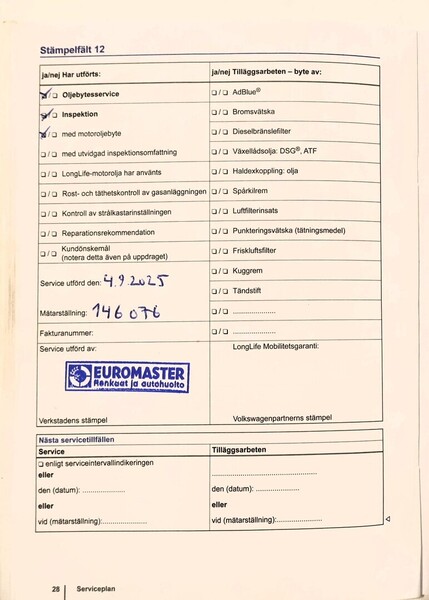 Stämpelfält 12
ja/nej Har utförts:
☒/☐ Oljebytesservice
☒/☐ Inspektion
☒/☐ med motoroljebyte
☐/☐ med utvidgad inspektionsomfattning
☐/☐ LongLife-motorolja har använts
☐/☐ Rost- och täthetskontroll av gasanläggningen
☐/☐ Kontroll av strålkastarinställningen
☐/☐ Reparationsrekommendation
☐/☐ Kundönskemål
(notera detta även på uppdraget)
Service utförd den: 4.9.2025
Mätarställning: 146 076
Fakturanummer:
Service utförd av:
EUROMASTER
Renkaat ja autohuolto
Verkstadens stämpel
ja/nej Tilläggsarbeten – byte av:
☐/☐ AdBlue®
☐/☐ Bromsvätska
☐/☐ Dieselbränslefilter
☐/☐ Växellådsolja: DSG®, ATF
☐/☐ Haldexkoppling: olja
☐/☐ Spårkilrem
☐/☐ Luftfilterinsats
☐/☐ Punkteringsvätska (tätningsmedel)
☐/☐ Friskluftsfilter
☐/☐ Kuggrem
☐/☐ Tändstift
☐/☐ .....................
☐/☐ .....................
LongLife Mobilitetsgaranti:
Volkswagenpartnerns stämpel
Nästa servicetillfällen
Service
☐ enligt serviceintervallindikeringen
eller
den (datum): .....................
eller
vid (mätarställning):.....................
Tilläggsarbeten
.....................
den (datum): .....................
eller
vid (mätarställning):.....................
28 Serviceplan